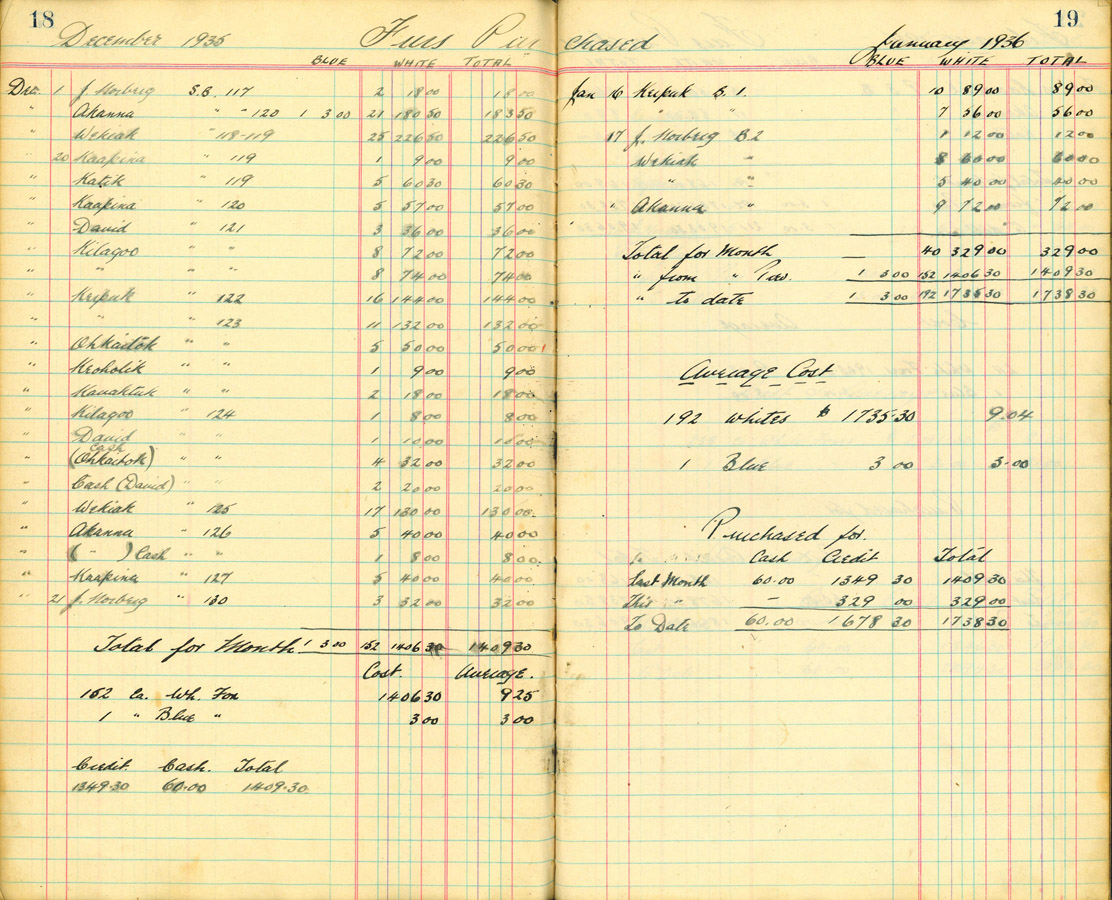 18
December 1935 Furs Pur
BLUE WHITE TOTAL
Dec. 1 J. Norberg S.B. 117 2 18 00 18 00
" Akanna " " 120 1 3 00 21 180 50 183 50
" Wekiak " 118-119 25 226 50 226 50
" 20 Kaapina " 119 1 9 00 9 00
" Katik " 119 5 60 30 60 30
" Kaapina " 120 5 57 00 57 00
" David " 121 3 36 00 36 00
" Kilagoo " " 8 72 00 72 00
" " " " 8 74 00 74 00
" Keipuk " 122 16 144 00 144 00
" " " 123 11 132 00 132 00
" Ohkaitok " " 5 50 00 50 00
" Kroholik " " 1 9 00 9 00
" " " 2 18 00 18 00
" Kilagoo " 124 1 8 00 8 00
" David " " 1 10 00 10 00
Cash
" (Ohkaitok) " " 4 32 00 32 00
" Cash (David) " " 2 20 00 20 00
" Wekiak " 125 17 130 00 130 00
" Akanna " 126 5 40 00 40 00
" ( " ) Cash " " 1 8 00 8 00
" Kaapina " 127 5 40 00 40 00
" 21 J. Norberg " 130 3 32 00 32 00
Total for Month 1 3 00 152 1406 30 1409 30
Cost. Average.
152 Ca. Wh. Fox 1406 30 9 25
1 " Blue " 3 00 3 00
Credit Cash. Total
1349.30 60.00 1409.30
19
chased January 1936
BLUE WHITE TOTAL
Jan 16 Keipuk B 1. 10 89 00 89 00
" " 7 56 00 56 00
17 J. Norberg B 2 1 12 00 12 00
Wekiak " 8 60 00 60 00
" " 5 40 00 40 00
" Akanna " 9 72 00 72 00
Total for Month — 40 329 00 329 00
" from " Prev. 1 3 00 152 1406 30 1409 30
" to date 1 3 00 192 1735 30 1738 30
Average Cost
192 Whites $ 1735.30 9.04
1 Blue 3 00 3.00
Purchased for.
Cash Credit Total
Last Month 60.00 1349 30 1409 30
This " — 329 00 329 00
To Date 60.00 1678 30 1738 30